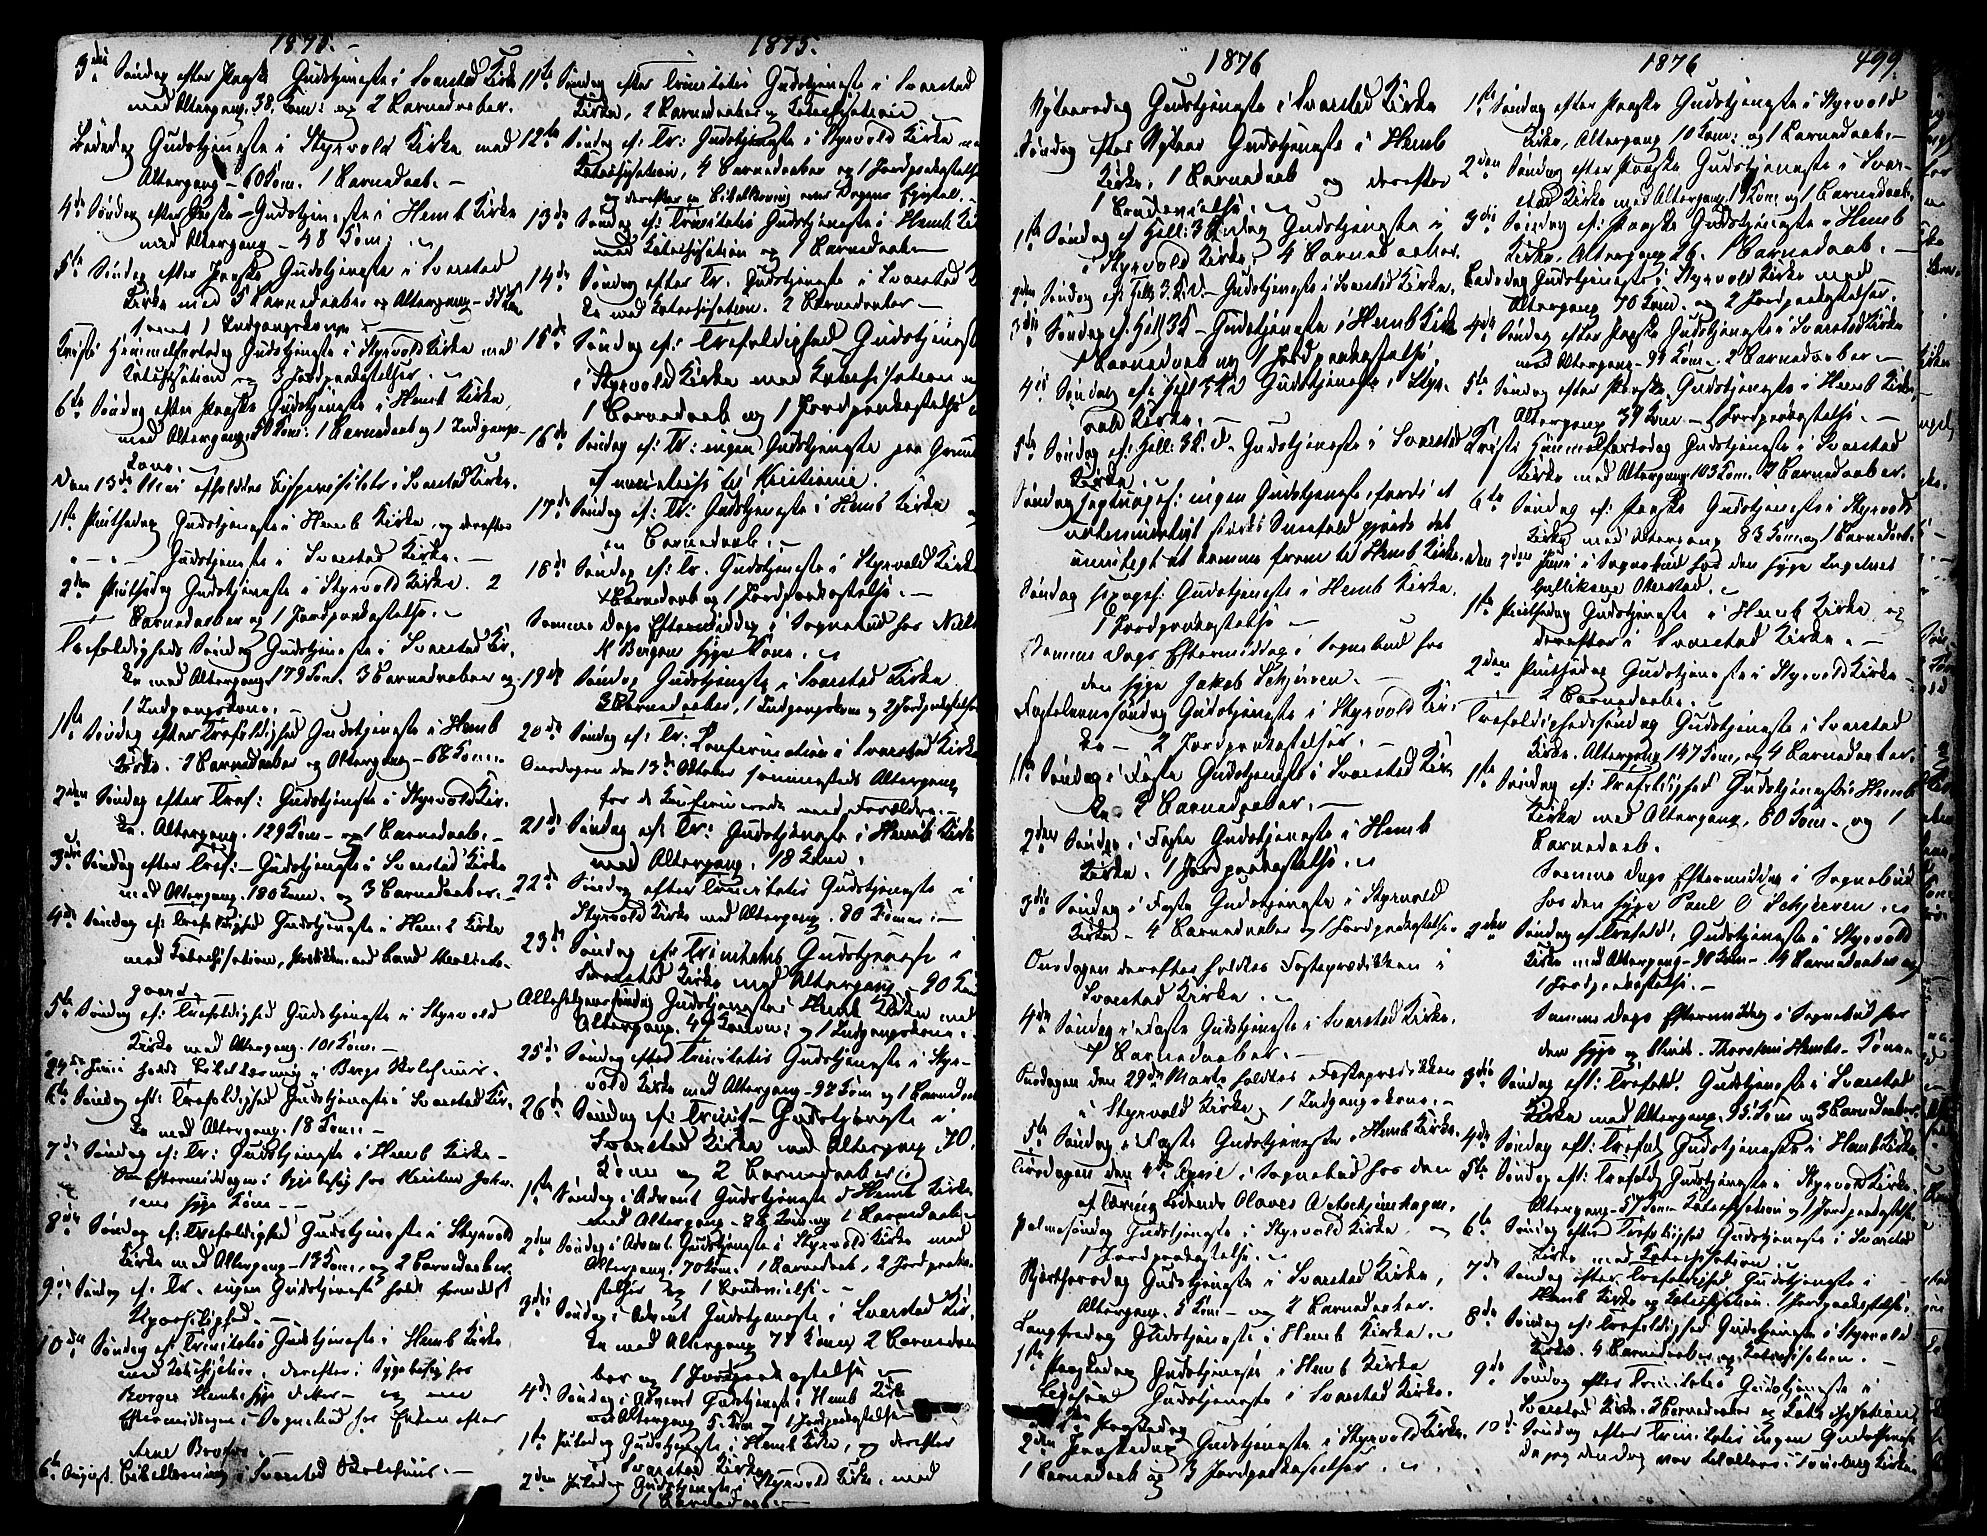 1875.
3die Søndag efter Paaske Gudstjeneste i Svarstad Kirke
med Altergang. 38 Kom: og 2 Barnedaaber.
Bededag Gudstjeneste i Styrvold Kirke med
Altergang – 60 Kom. 1 Barnedaab. –
4de Søndag efter Paaske – Gudstjeneste i Hemb Kirke
med Altergang – 48 Kom;
5te Søndag efter Paaske Gudstjeneste i Svarstad
Kirke med 5 Barnedaaber og Altergang –
samt 1 Indgangskone
Kristi Himmelfartsdag Gudstjeneste i Styrvold Kirke med
Katechisation og 3 Jordpaakastelser.
6te Søndag efter Paaske Gudstjeneste i Hemb Kirke,
med Altergang, Kom: 1 Barnedaab og 1 Indgangs-
kone.
Den 13de Mai afholdtes i Svarstad Kirke.
1ste Pintsedag Gudstjeneste i Hemb Kirke, og derefter
Gudstjeneste i Svarstad Kirke. –
2den Pintsedag Gudstjeneste i Styrvold Kirke. 2
Barnedaaber og 1 Jordpaakastelse.
Trefoldigheds Søndag Gudstjeneste i Svarstad Kir-
ke med Altergang 179 Kom. 3 Barnedaaber og
1 Indgangskone.
1ste Søndag efter Trefoldighed Gudstjeneste i Hemb
Kirke. Barnedaaber og Altergang – 68 Kom.
2den Søndag efter Tref: Gudstjeneste i Styrvold Kir-
ke. Altergang. 129 Kom – og 1 Barnedaab. –
3die Søndag efter Tref: – Gudstjeneste i Svarstad Kirke
med Altergang. 180 Kom. og 3 Barnedaaber. –
4de Søndag ef: Trefoldighed Gudstjeneste i Hemb Kirke
med Katechisation,
gaard.
5te Søndag ef: Trefoldighed Gudstjeneste i Styrvold
Kirke med Altergang. 101 Kom. –
Juni holdt Bibellæsning i Berge Skolehuus.
6te Søndag eft: Trefoldighed Gudstjeneste i Svarstad Kir-
ke med Altergang. 18 Kom. –
7de Søndag ef: Tr: Gudstjeneste i Hemb Kirke –
Om Eftermiddagen i Sygebesøg hos
syge Kone. –
8de Søndag ef: Trefoldighed Gudstjeneste i Styrvold
Kirke med Altergang – 13 Kom, og 2 Barnedaaber.
9de Søndag ef: Tr. ingen Gudstjeneste holdt formedelst
Upasselighed. –
10de Søndag ef: Trinitatis Gudstjeneste i Hemb Kirke,
med Katechisation, derefter i Sygebesøg hos
Borger Hembs syge Datter – og om
Eftermiddagen i Sognebud hos Enken efter
Arne
6te August. Bibellæsning i Svarstad Skolehuus. –
1875.
11te Søndag efter Trinitatis Gudstjeneste i Svarstad
Kirke, 2 Barnedaaber og Katechisation
12te Søndag ef: Tr: Gudstjeneste i Styrvold Kirke
Katechisation, 4 Barnedaaber og 1 Jordpaakastelse
og derefter en Bibellæsning over Dagens Epistel. –
13de Søndag ef: Trinitatis Gudstjeneste i Hemb
med Katechisation og 1 Barnedaab –
14de Søndag efter Tr. Gudstjeneste i Svarstad
ke med Katechisation. 2 Barnedaaber –
15de Søndag ef: Trefoldighed Gudstjeneste
i Styrvold Kirke med Katechisation
1 Barnedaab og 1 Jordpaakastelse
16de Søndag ef: Tr: ingen Gudstjeneste paa Grund
af min Reise til Kristiania.
17de Søndag ef: Tr: Gudstjeneste i Hemb Kirke
en Barnedaab. –
18de Søndag ef: Tr. Gudstjeneste i Styrvold Kirke
Barnedaab og 1 Jordpaakastelse. –
Samme Dags Eftermiddag i Sognebud hos
Bergans syge Kone.
19de Søndag Gudstjeneste i Svarstad Kirke
3 Barnedaaber, 1 Indgangskone og 2 Jordpaakastelser
20de Søndag ef: Tr: Confirmation i Svarstad Kirke
Onsdagen den 13de Oktober sammesteds Altergang
for de Konfirmerede med Forældre. –
21de Søndag ef: Tr: Gudstjeneste i Hemb Kirke
med Altergang. 18 Kom.
22de Søndag efter Trinitatis Gudstjeneste i
Styrvold Kirke med Altergang. 80 Komm: –
23de Søndag ef: Trinitatis Gudstjeneste i
Svarstad Kirke med Altergang – 90 Kom
Allehelgenssøndag Gudstjeneste i Hemb Kirke med
Altergang. 44 Komm: og 1 Indgangskone.
25de Søndag efter Trinitatis Gudstjeneste i Styr-
vold Kirke med Altergang – 92 Kom og 1 Barnedaab
26de Søndag ef: Trinit – Gudstjeneste i
Svarstad Kirke med Altergang 70.
Komm og 2 Barnedaaber
1ste Søndag i Advent Gudstjeneste i Hemb Kirke
med Altergang – 82 Kom og 1 Barnedaab –
2den Søndag i Advent Gudstjeneste i Styrvold Kirke med
Altergang. 70 Kom. 1 Barnedaab, 2 Jordpaaka-
stelser og 1 Brudevielse. –
3die Søndag i Advent Gudstjeneste i Svarstad Kir-
ke med Altergang 77 Komm 2 Barnedaa-
ber og 1 Jordpaakastelse
4de Søndag i Advent Gudstjeneste i Hemb Kirke
med Altergang 5 Kom og 1 Jordpaakastelse
1ste Juledag Gudstjeneste i Hemb Kirke, og derefter
i Svarstad Kirke
2den Juledag Gudstjeneste i Styrvold Kirke. med
1 Barnedaab –
1876
Nytaarsdag Gudstjeneste i Svarstad Kirke
Søndag efter Nytaar Gudstjeneste i Hemb
Kirke, 1 Barnedaab og derefter
1 Brudevielse.
1ste Søndag ef Hell: 3 K dag Gudstjeneste i
i Styrvold Kirke, 4 Barnedaaber.
2den Søndag ef: Hell: 3 K. D. – Gudstjeneste i Svarstad Kirke.
3die Søndag ef. Hell 3 K – Gudstjeneste i Hemb Kirke
1 Barnedaab og 1 Jordpaakastelse.
4de Søndag ef: Hell 3 K D Gudstjeneste i Styr-
vold Kirke.
5te Søndag ef: Hell: 3 K. D – Gudstjeneste i Svarstad
Kirke.
Søndag septuages: ingen Gudstjeneste, fordi et
ualmindeligt stærkt Sneefald gjorde det
umuligt at komme frem til Hemb Kirke.
Søndag sexages: Gudstjeneste i Hemb Kirke.
1 Jordpaakastelse –
Samme Dags Eftermiddag i Sognebud hos
den syge Jakob Schjerven. –
Fastelavnssøndag Gudstjeneste i Styrvold Kir-
ke – 2 Jordpaakastelser. –
1ste Søndag i Faste Gudstjeneste i Svarstad Kir-
ke 2 Barnedaaber. –
2den Søndag i Faste Gudstjeneste i Hemb
Kirke, 1 Jordpaakastelse.
3die Søndag i Faste Gudstjeneste i Styrvold
Kirke – 4 Barnedaaber og 1 Jordpaakastelse.
Onsdagen derefter holdtes Fasteprædikken i
Svarstad Kirke.
4de Søndag i Faste Gudstjeneste i Svarstad Kirke.
Barnedaaber. –
Onsdagen den 29de Marts holdtes Fasteprædikken
i Styrvold Kirke, 1 Indgangskone. –
5te Søndag i Faste Gudstjeneste i Hemb Kirke.
Tirsdagen den 4de April i Sognebud hos den
af Tæring Lidende Olaves
Palmesøndag Gudstjeneste i Styrvold Kirke og
1 Jordpaakastelse.
Skjærthorsdag Gudstjeneste i Svarstad Kirke,
Altergang. 5 Kom – og 2 Barnedaaber.
Langfredag Gudstjeneste i Hemb Kirke.
1ste Paaskedag Gudstjeneste i Hemb Kirke
Ligesaa Gudstjeneste i Svarstad Kirke.
1ste Paaskedag
2den Paaskedag Gudstjeneste i Styrvold Kirke.
1 Barnedaab og 3 Jordpaakastelser.
1876 499.
1ste Søndag efter Paaske Gudstjeneste i Styrvold
Kirke, Altergang 10 Kom: og 1 Barnedaab. –
2den Søndag efter Paaske Gudstjeneste i Svar-
stad Kirke med Altergang. Kom og 1 Barnedaab.
3die Søndag ef: Paaske Gudstjeneste i Hemb
Kirke, Altergang 26. 1 Barnedaab. –
Bededag Gudstjeneste i Styrvold Kirke med
Altergang 70 Kom. og 2 Jordpaakastelser.
4de Søndag efter Paaske Gudstjeneste i Svarstad Kirke
med Altergang – 99 Kom – 2 Barnedaaber –
5te Søndag efter Paaske Gudstjeneste i Hemb Kirke,
Altergang 39 Kom – 1 Jordpaakastelse. –
Kristi Himmelfartsdag Gudstjeneste i Svarstad
Kirke med Altergang 103 Kom. 7 Barnedaaber.
6te Søndag ef: Paaske Gudstjeneste i Styrvold
Kirke med Altergang 83 Kom. og 1 Barnedaab.
den 2den Juni i Sognebud hos den syge Ingeborg
1ste Pintsedag Gudstjeneste i Hemb Kirke og
derefter i Svarstad Kirke. –
2den Pintsedag Gudstjeneste i Styrvold Kirke –
Barnedaab.
Trefoldighedssøndag Gudstjeneste i Svarstad
Kirke. Altergang 147 Kom, og 4 Barnedaaber.
1ste Søndag ef: Trefoldighed Gudstjeneste i Hemb
Kirke med Altergang, 60 Kom – og 1
Barnedaab.
Samme Dags Eftermiddag i Sognebud
hos den syge Paul O Schjerven.
2den Søndag ef. Trefold: Gudstjeneste i Styrvold
Kirke med Altergang – 90 Kom – 4 Barnedaaber og
1 Jordpaakastelse. –
Samme Dags Eftermiddag i Sognebud hos
den syge og blinde Hembs – Kone –
3die Søndag eft: Trefold. Gudstjeneste i Svarstad
Kirke med Altergang. 95 Kom og 3 Barnedaaber
4de Søndag eft: Trefold Gudstjeneste i Hemb Kirke,
5te Søndag ef: Trefold Gudstjeneste i Styrvold Kirke.
Altergang – 57 Kom – Katechisation og 1 Jordpaakastelse.
6te Søndag efter Trefoldighed Gudstjeneste i Svarstad
Kirke med Katechisation.
7de Søndag efter Trefoldighed Gudstjeneste i
Hemb Kirke og Katechisation. 1 Jordpaakastelse.
8de Søndag ef: Trefoldighed Gudstjeneste i Styrvold
Kirke. 4 Barnedaaber og Katechisation. –
9de Søndag efter Trinitatis Gudstjeneste i
Svarstad Kirke. 3 Barnedaaber og Katechisation,
10de Søndag efter Trinitatis ingen Gudstjeneste
da jeg den Dag var i Tønsberg Kirke